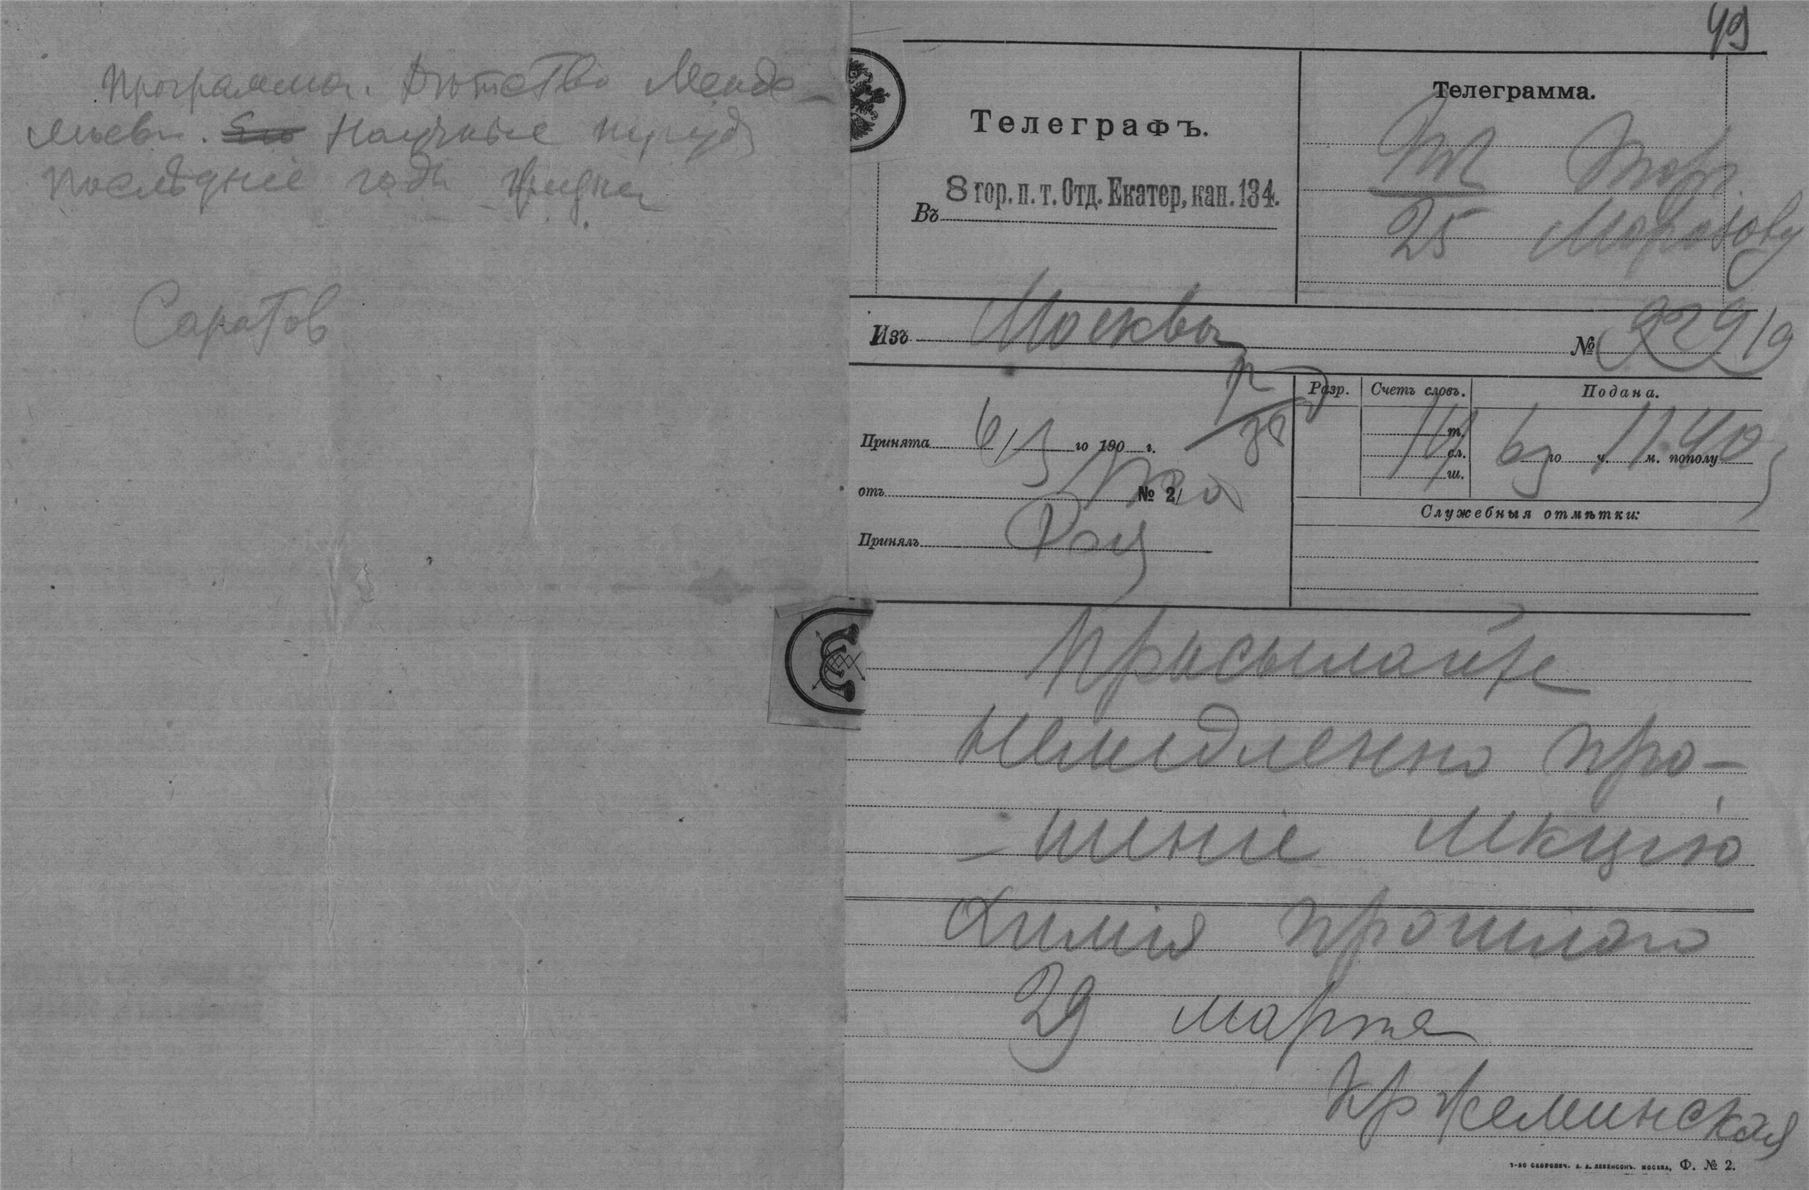 Программа. Детство Менде-
лѣева. Его Научные труды
Последніе годы жизни
Саратов
49
Телеграфъ.
Въ 8 гор. п. т. Отд. Екатер. кан. 134.
Телеграмма.
Торг.
25 Морозову
Изъ Москвы
№ 229/9
Принята 6/3 го 190 г.
отъ № 2/
Принялъ
Разр. Счетъ словъ. Подана.
14 т. сл. ш. 6/3 го ч. 11.40 м. пополу
Служебныя отмѣтки:
Присылайте
немедленно про-
-шеніе лекцію
Химія прошлого
29 марта
Кржеминская
Т-во скоропеч. А. А. Левенсонъ. Москва, Ф. № 2.